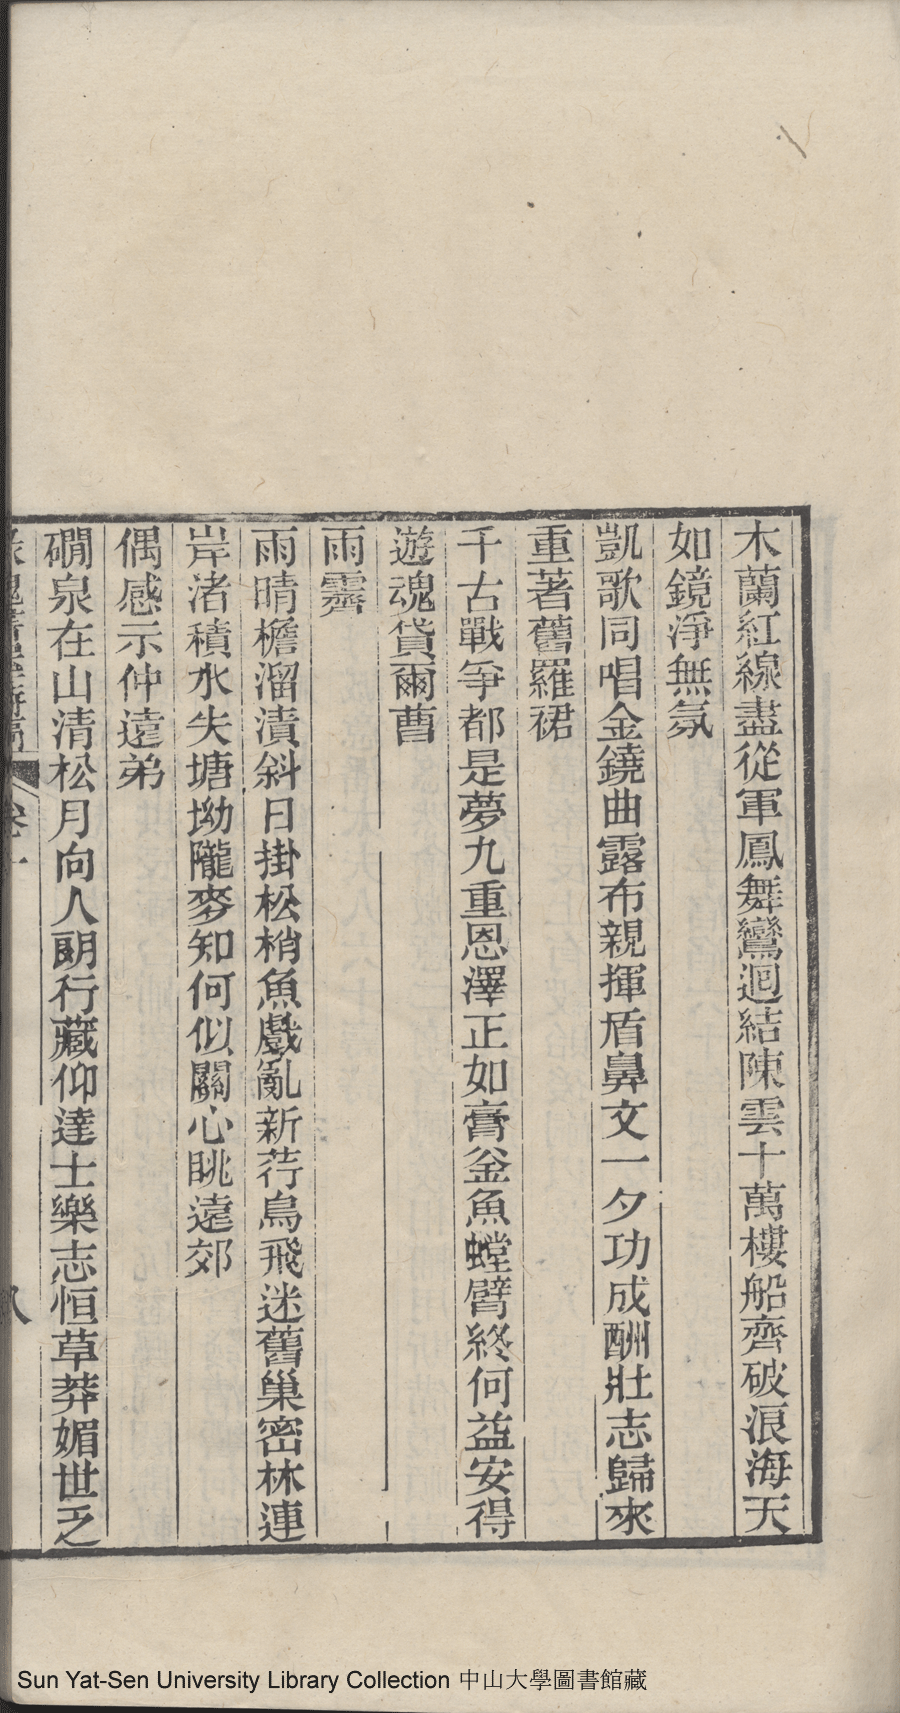 木蘭紅線盡從軍鳳舞鸞迴結陳雲十萬樓船齊破浪海天
如鏡淨無氛
凱歌同唱金鐃曲露布親揮盾鼻文一夕功成酬壯志歸來
重著舊羅裙
千古戰爭都是夢九重恩澤正如膏釜魚螳臂終何益安得
遊魂貸爾曹
雨霽
雨晴檐溜漬斜日掛松梢魚戲亂新荇鳥飛迷舊巢密林連
岸渚積水失塘坳隴麥知何似關心眺遠郊
偶感示仲遠弟
磵泉在山清松月向人朗行藏仰達士樂志恒草莽媚世乏
卷一
八
Sun Yat-Sen University Library Collection 中山大學圖書館藏